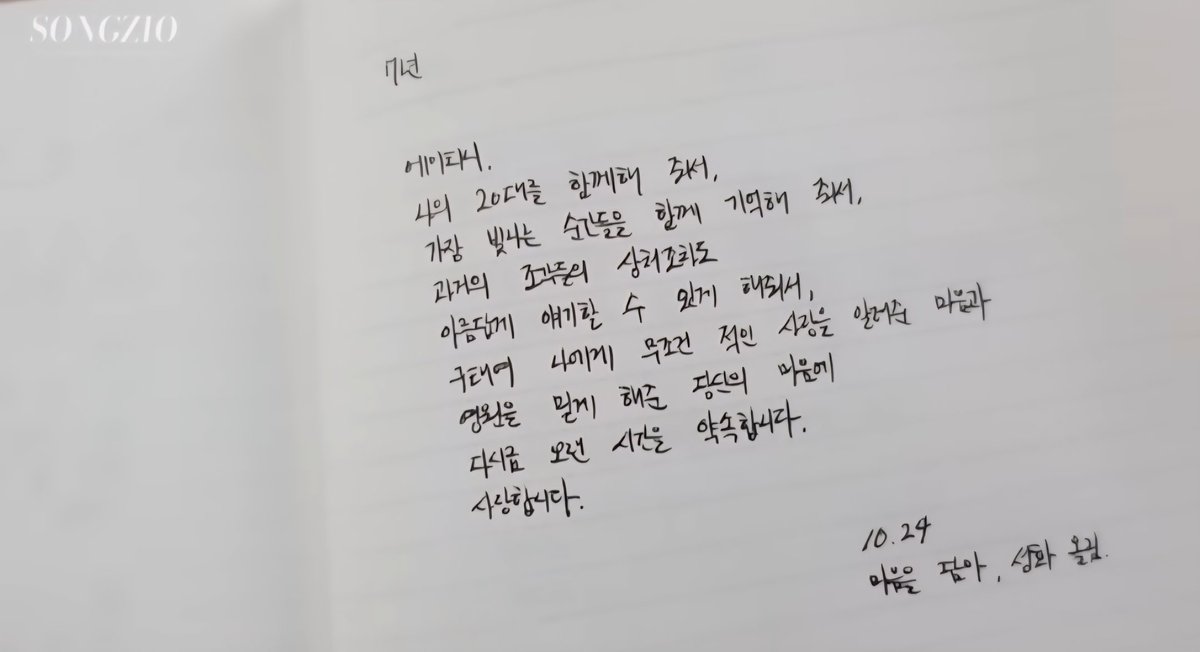 SONGZIO
7년
에이티니.
나의 20대를 함께해 줘서,
가장 빛나는 순간들을 함께 기억해 줘서,
과거의 조각들의 상처조차도
아름답게 얘기할 수 있게 해줘서,
구태여 나에게 무조건 적인 사랑을 알려준 마음과
영원을 믿게 해준 당신의 마음에
다시금 오랜 시간을 약속합니다.
사랑합니다.
10.24
마음을 담아, 성화 올림.